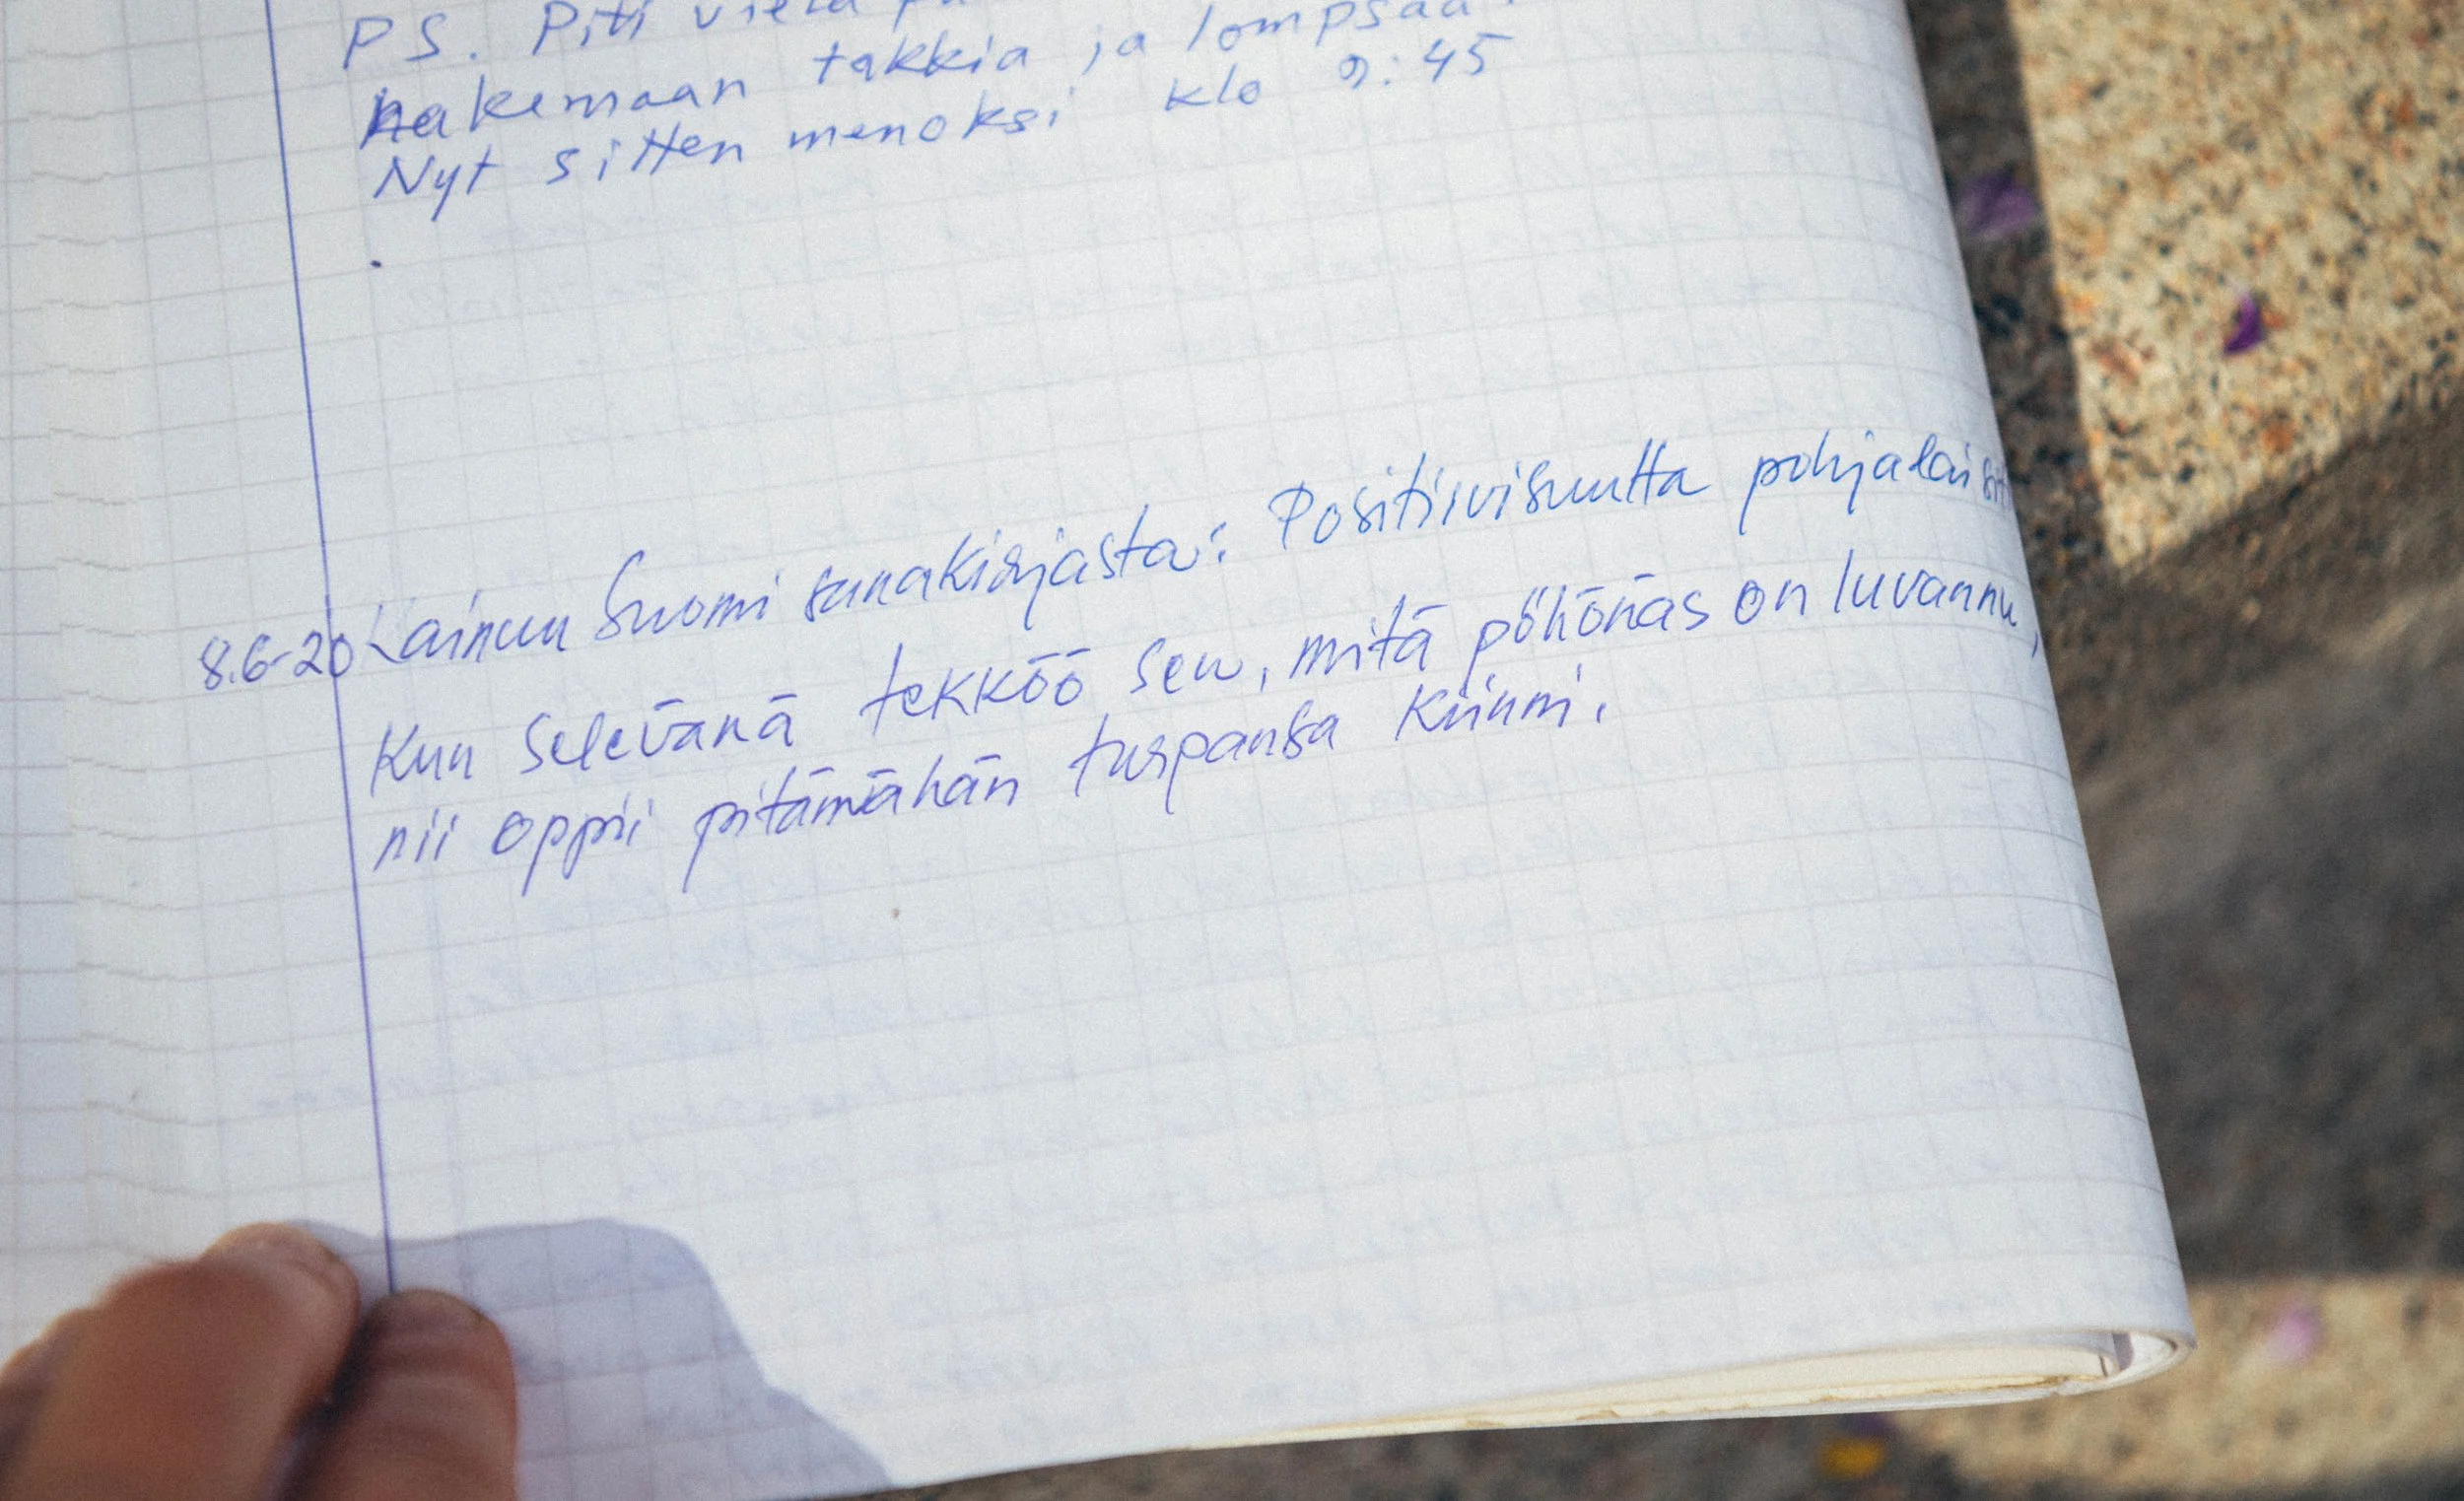 PS. Piti vielä
hakemaan takkia ja lompsaa.
Nyt sitten menoksi klo 9:45
8.6-20 Lainuu Suomi sanakirjasta: Positiivisuutta pohjalaisit
Kun selevänä tekköö sen, mitä pöhönäs on luvannu,
nii oppii pitämähän turpansa kiinni.